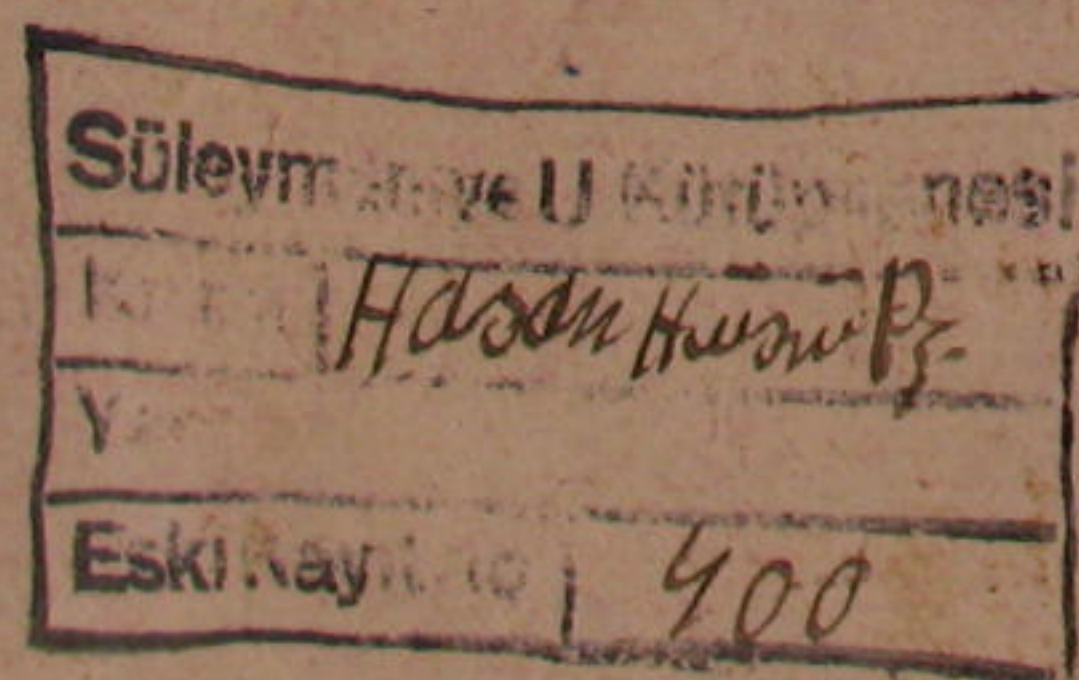 Süleymaniye U Kütüphanesi
Hasan Hüsnü Pş.
Y
Eski Kayıt No 400